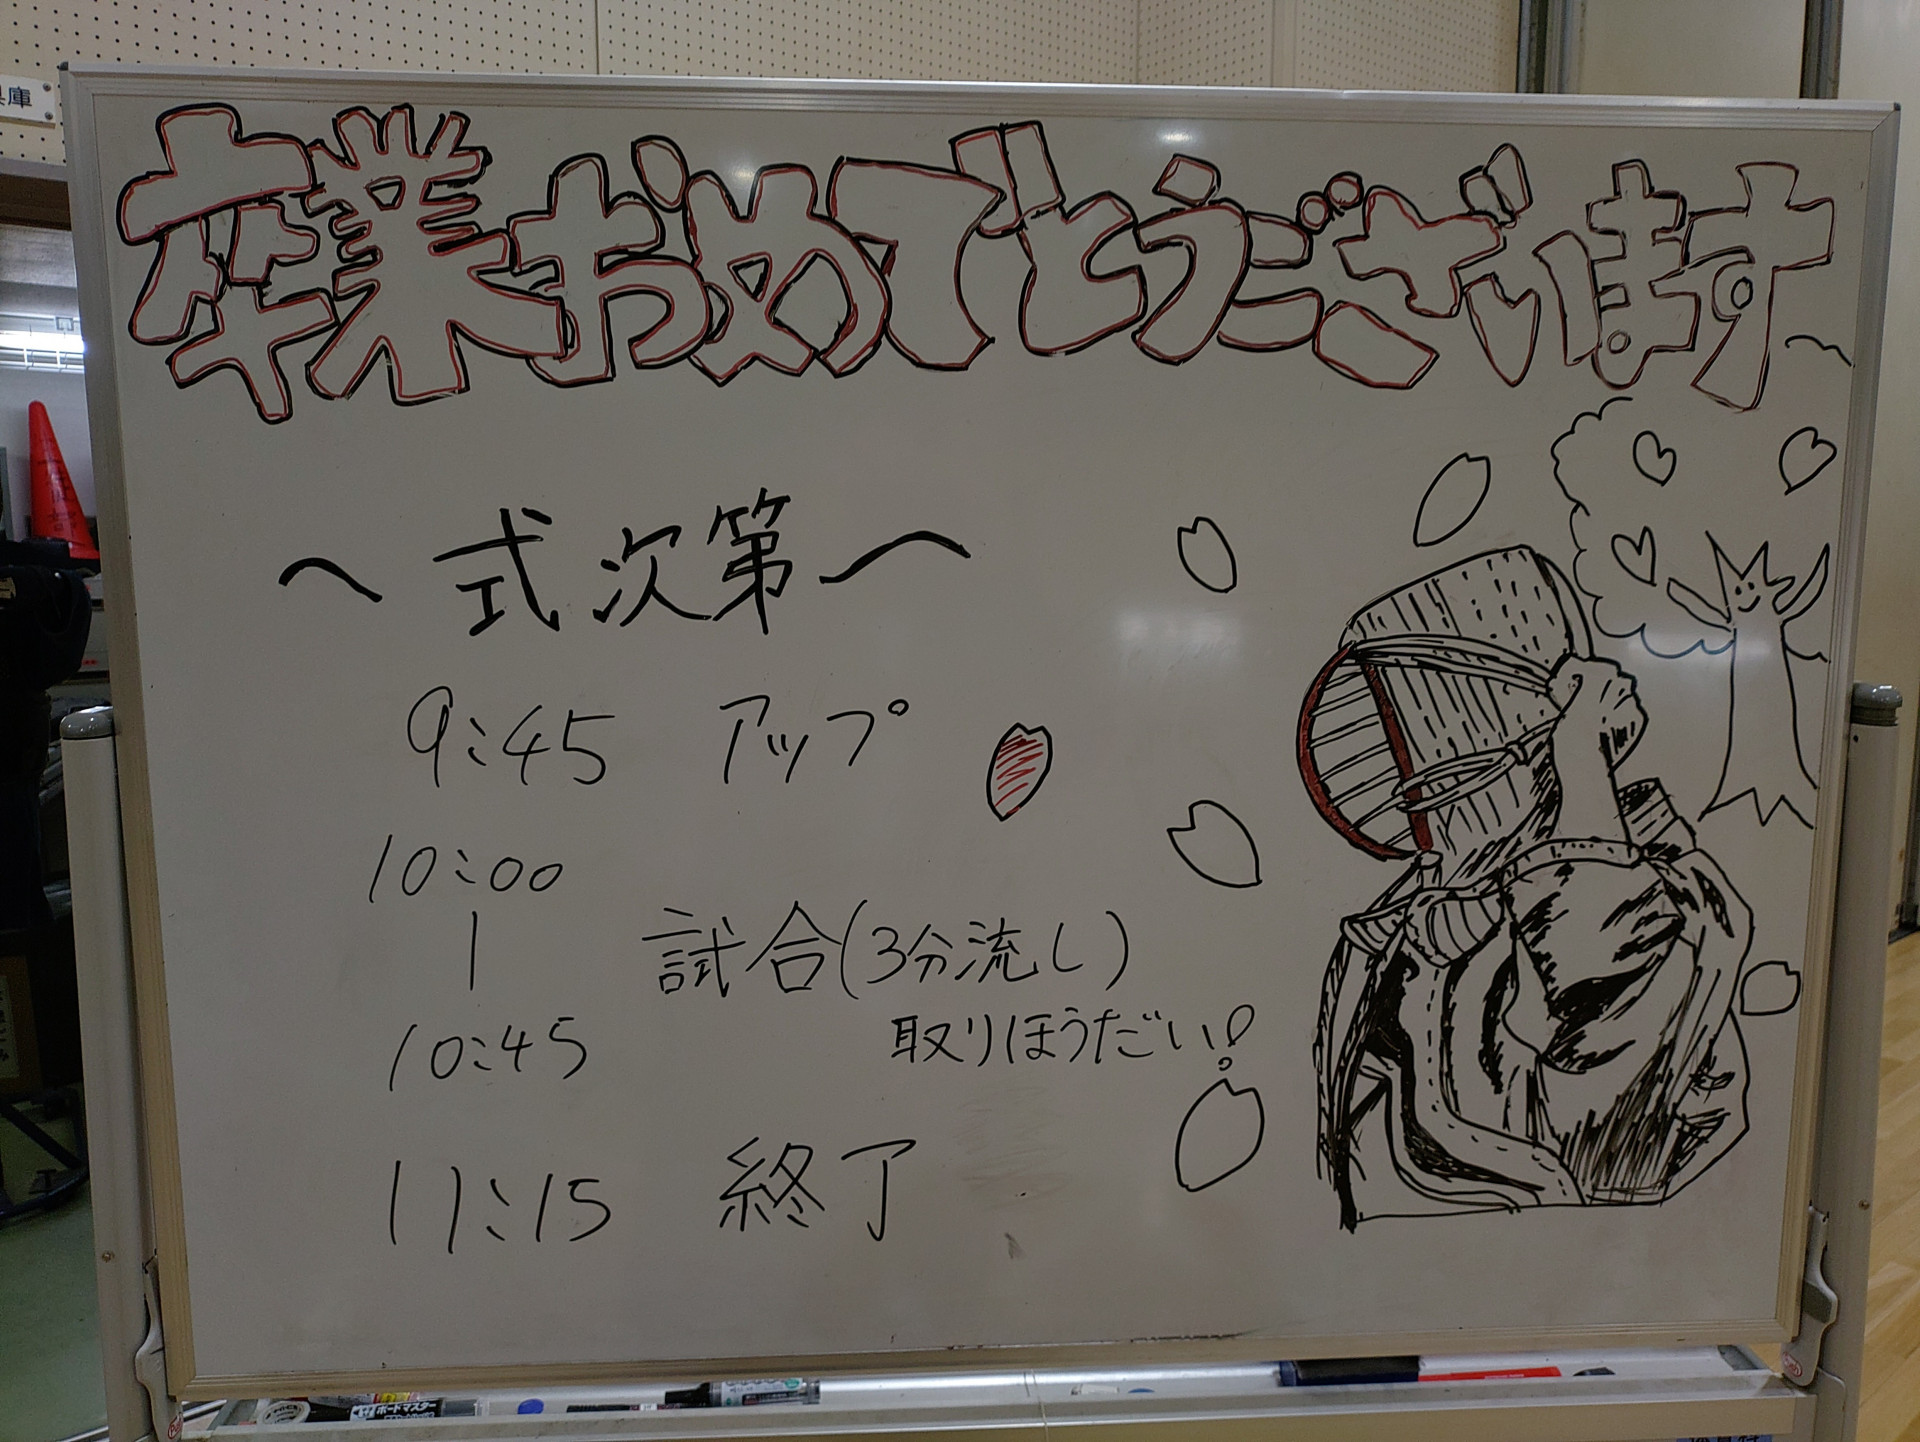 卒業おめでとうございます
〜式次第〜
9:45 アップ
10:00
|
試合(3分流し)
10:45
取りほうだい!
11:15 終了
庫
ボードマスター